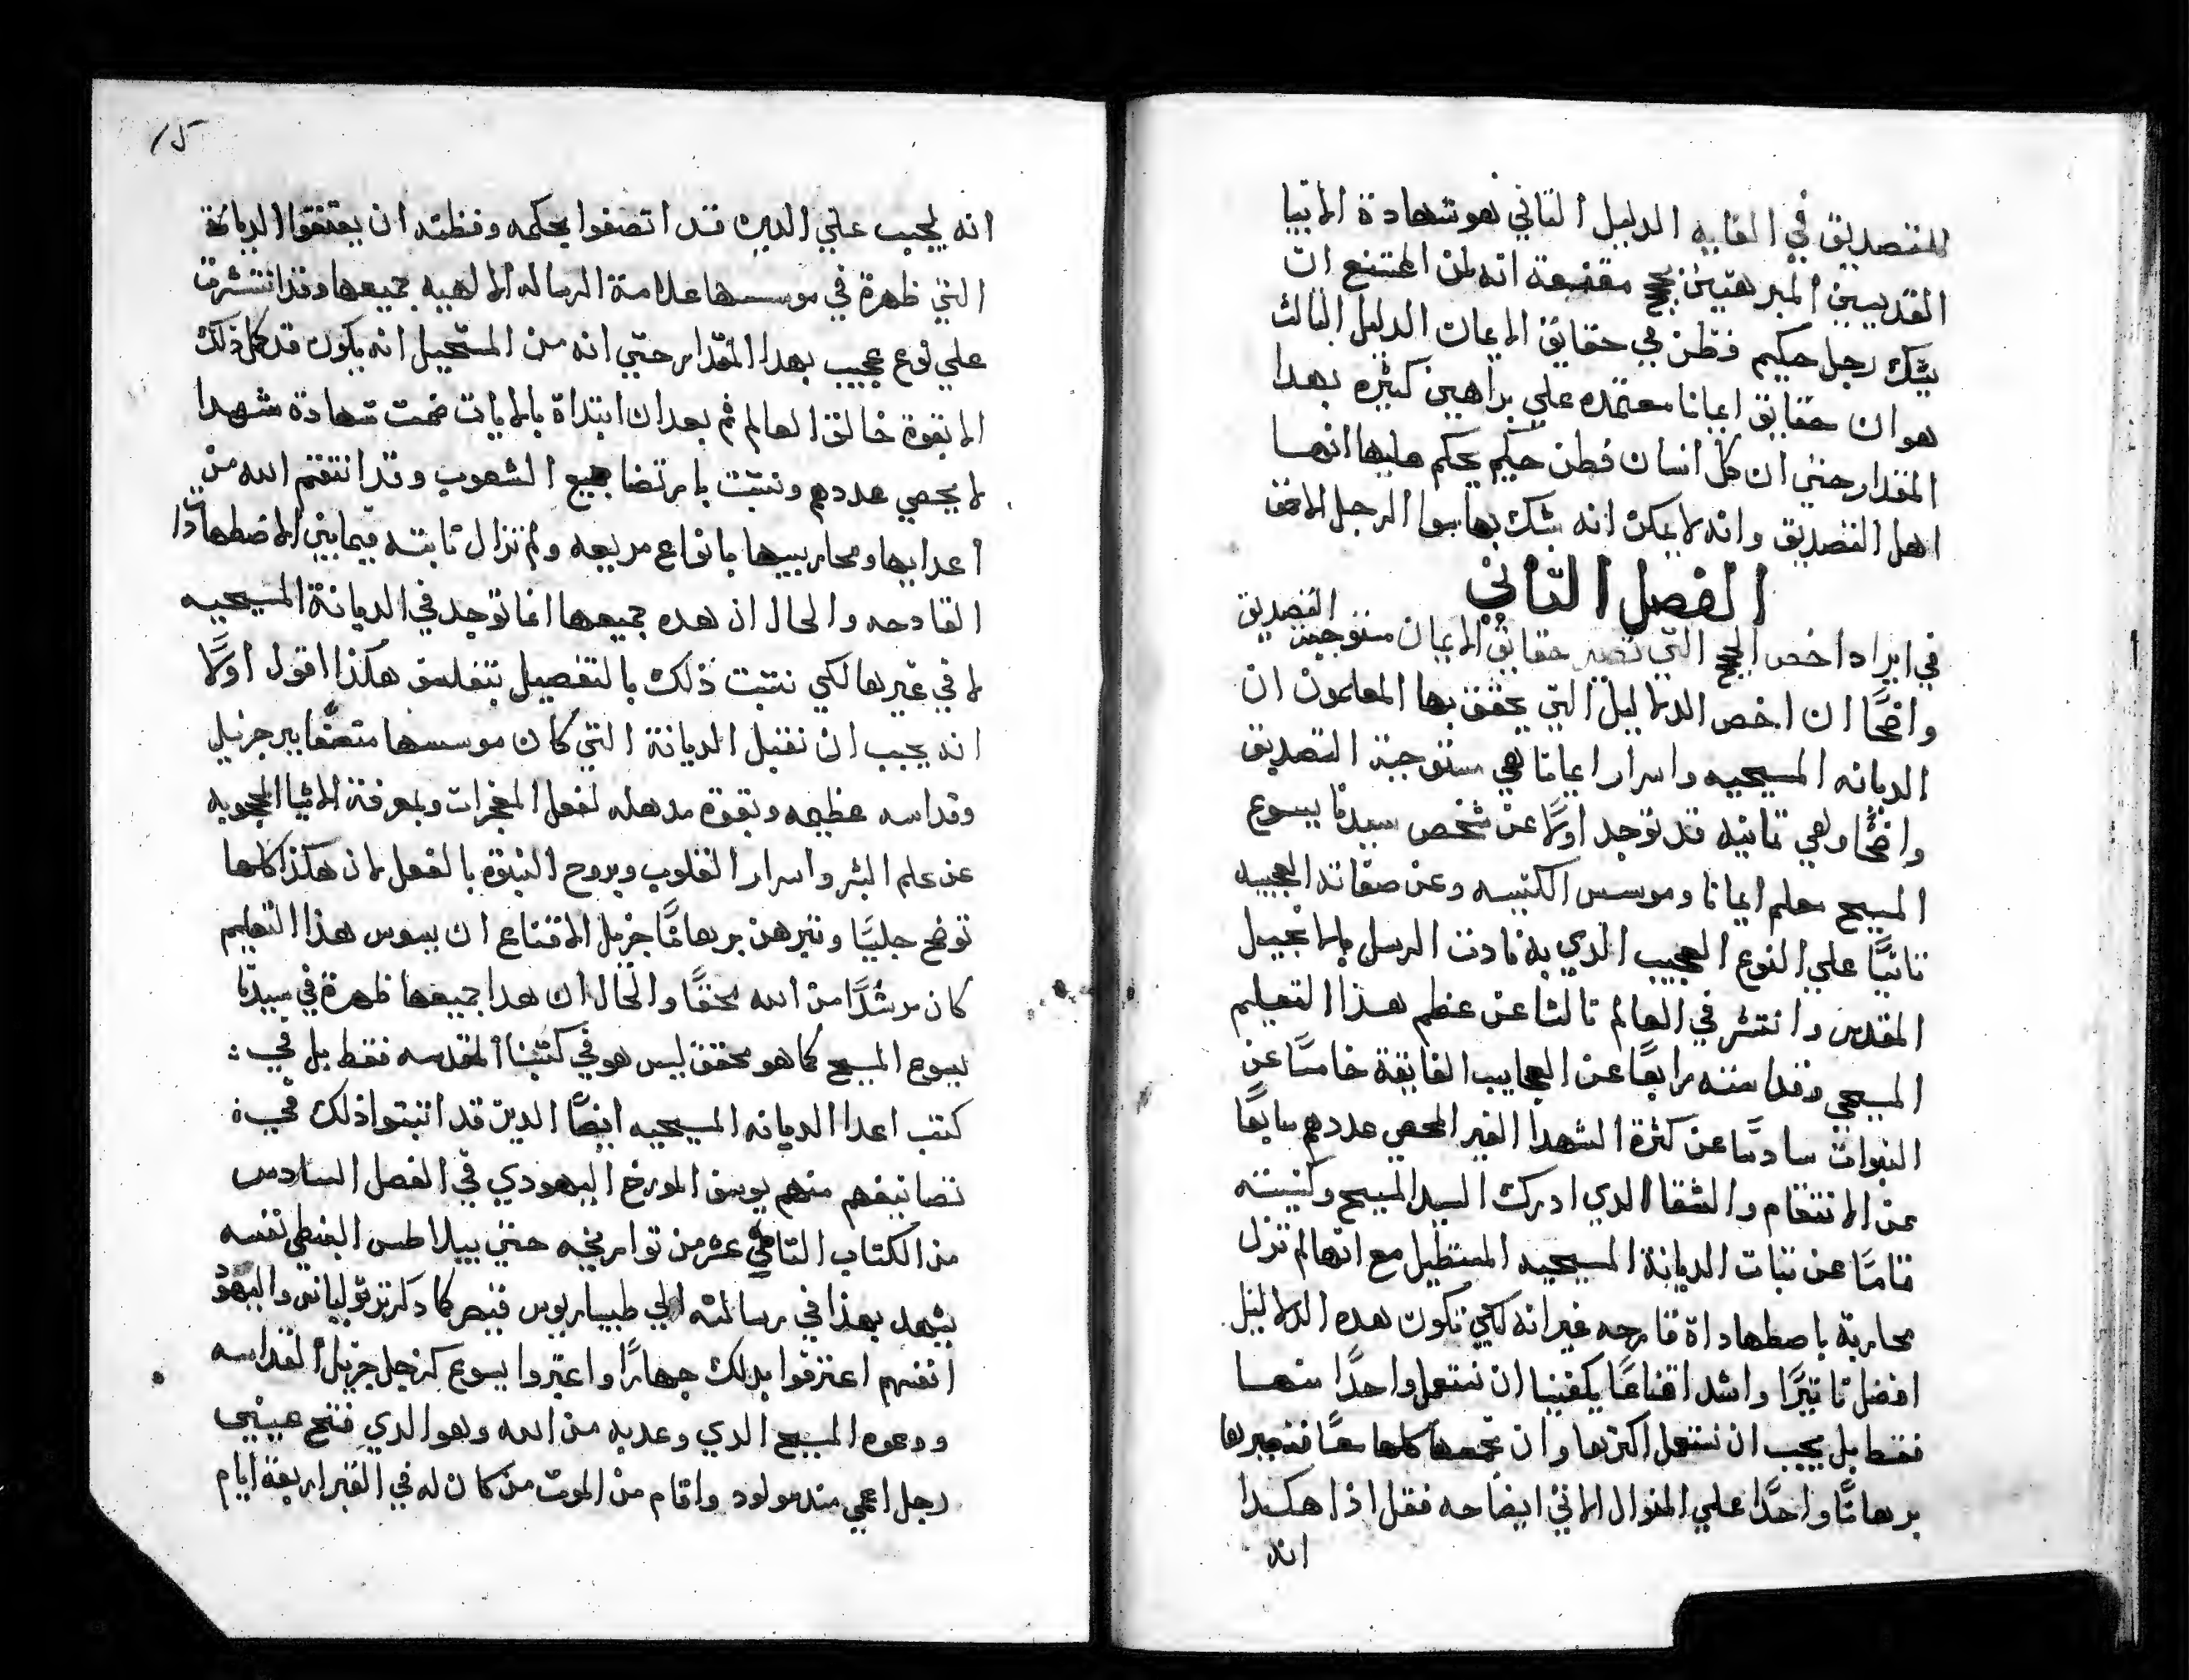 للتصديق في الغايه الدليل الثاني هو شهادة الابيا
القديسين المبرهنين بحجج مقنعة انه لمن الممتنع ان
يشك رجل حكيم فطن في حقايق الايمان الدليل الثالث
هو ان حقايق ايماننا معتمده علي براهين كثيره بهدا
المقدار حتي ان كل انسان فطن حكيم يحكم عليها انها
اهل التصديق وانه لا يمكن انه يشك بها سوا الرجل الاحمق
الفصل الثاني
في ايراد اخص الحجج التي تصير حقايق الايمان مستوجبة التصديق
واضحًا ان اخص الدلاليل التي يحقق بها المعلمون ان
الديانه المسيحيه واسرار ايماننا هي مستوجبة التصديق
واضحًا وهي تمانيه قد توجد اولًا عن شخص سيدنا يسوع
المسيح معلم ايماننا وموسس الكنيسه وعن صفاته العجيبه
تانيًا علي النوع العجيب الدي به نادت الرسل بالانجيل
المقدس وانتشر في العالم تالثا عن عظم هذا التعليم
المسيحي وقداسته رابعًا عن العجايب الفايقة خامسًا عن
النبوات سادسًا عن كثرة الشهدا الغير المحصي عددهم سابعًا
عن الانتقام والشقا الدي ادرك السيد المسيح وكنيسته
تامنًا عن تبات الديانة المسيحيه المستطيل مع انها لم تزل
محاربة باضطهاداة قادحه غير انه لكي تكون هده الدلاليل
افضل تاتيرًا واشد اقناعًا يكفينا ان نستعمل واحدًا منها
فقط بل يجب ان نستعمل اكثرها وان نجمعها كلها معًا فنصيرها
برهانًا واحدًا علي المنوال الاتي ايضاحه فقل اذا هكدا
انه
15
انه ليجب علي الدين قد اتصفوا بحكمه وفطنه ان يعتنقوا الديانة
التي ظهرة في موسسها علامة الرساله الالهيه جميعها وقد انتشرت
علي نوع عجيب بهدا المقدار حتي انه من المستحيل انه يكون قد كمل ذلك
الا بقوة خالق العالم ثم بعد ان ابتداة بالايات نمت شهادة شهدا
لا يحصي عددهم وتتبتت بارتضا جميع الشعوب وقد انتقم الله من
اعدايها ومحاربيها بانواع مريعه ولم تزال تابته فيما بين الاضطهادات
القادحه والحال ان هده جميعها انما توجد في الديانة المسيحيه
لا في غيرها لكي نتبت ذلك بالتفصيل نتفلسف هكذا اقول اولًا
انه يجب ان نقبل الديانة التي كان موسسها متصفًا ببر جزيل
وقداسه عظيمه وبقوة مدهله لفعل المعجزات وبمعرفة الاشيا المحجوبه
عن علم البشر واسرار القلوب وبروح النبوة بالفعل لان هكذا كلها
توضح جليًا وتبرهن برهانًا جزيل الاقناع ان يسوس هذا التعليم
كان مرشدًا من الله محققًا والحال ان هدا جميعها ظهرة في سيدنا
يسوع المسيح كما هو محقق ليس هو في كتبنا المقدسه فقط بل في :
كتب اعدا الديانه المسيحيه ايضًا الدين قد اتبتوا ذلك في :
تصانيفهم منهم يوسف المورخ اليهودي في الفصل السادس
من الكتاب التامن عشر من تواريخيه حتي بيلاطس البنطي نفسه
يشهد بهذا في رسالته الي طيباريوس قيصر كما دكر ترتوليانس واليهود
انفسهم اعترفوا بدلك جهارًا واعتبروا يسوع كرجل جزيل القداسه
ودعوه المسيح الدي وعد به من الله وهو الدي فتح عيني
رجل اعمي مند مولود واقام من الموت من كان له في القبر اربعة ايام